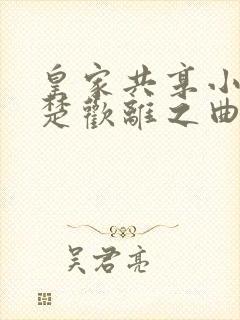 皇家共享小
楚歡離之曲
吴君亮